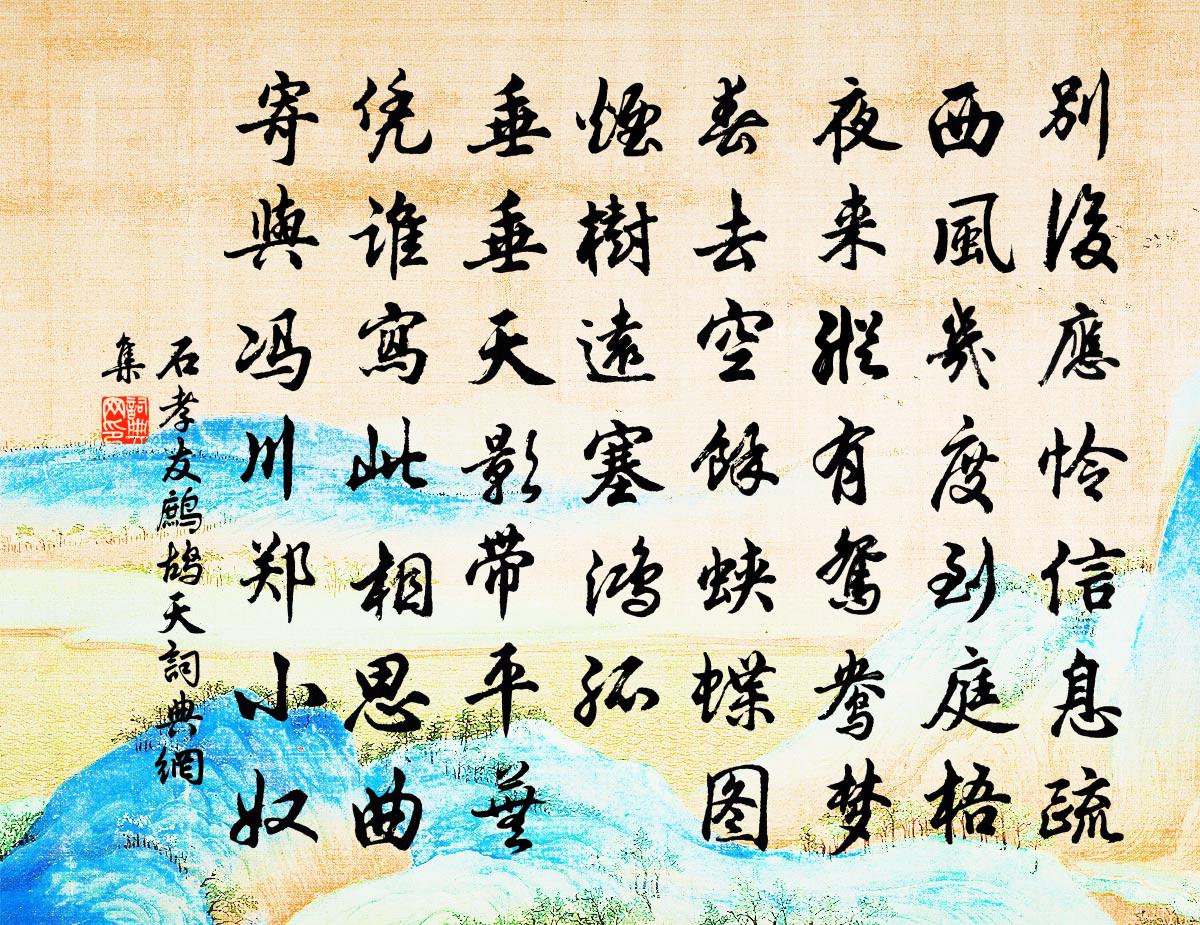 别後應怜信息疏
西風幾度到庭梧
夜来縱有鴛鴦梦
春去空餘蛱蝶图
煙樹遠塞鴻孤
垂垂天影帶平蕪
凭誰寫此相思曲
寄與冯川郑小奴
石孝友鷓鴣天詞典網
集
詞典
网印